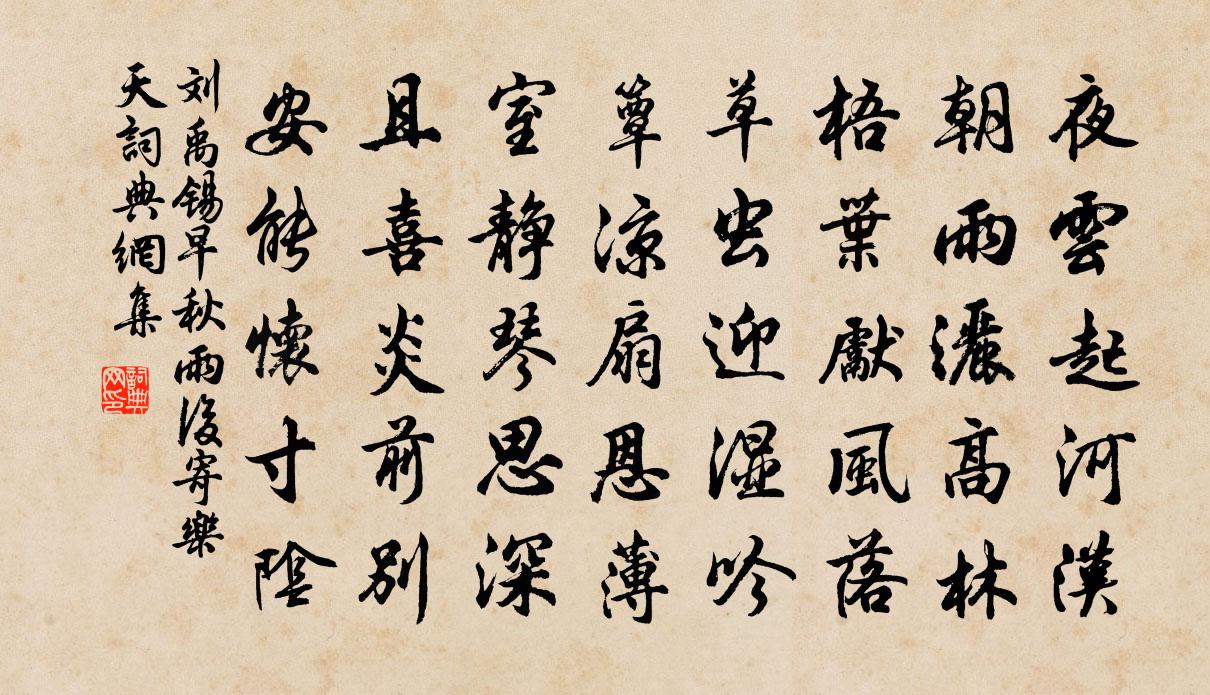 夜雲起河漢
朝雨灑高林
梧葉獻風落
草虫迎湿吟
簟涼扇恩薄
室靜琴思深
且喜炎前別
安能懷寸陰
刘禹錫早秋雨後寄樂
天詞典網集
詞典
网印